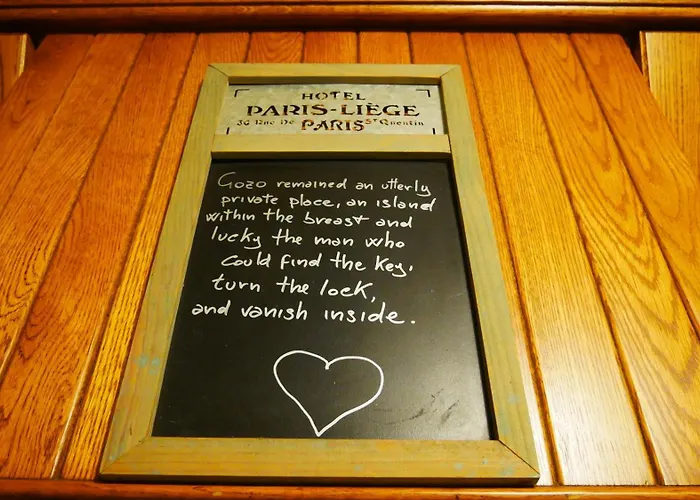 HOTEL
PARIS-LIÈGE
36 Rue De PARIS St Quentin
Gozo remained an utterly
private place, an island
within the breast and
lucky the man who
could find the key,
turn the lock,
and vanish inside.